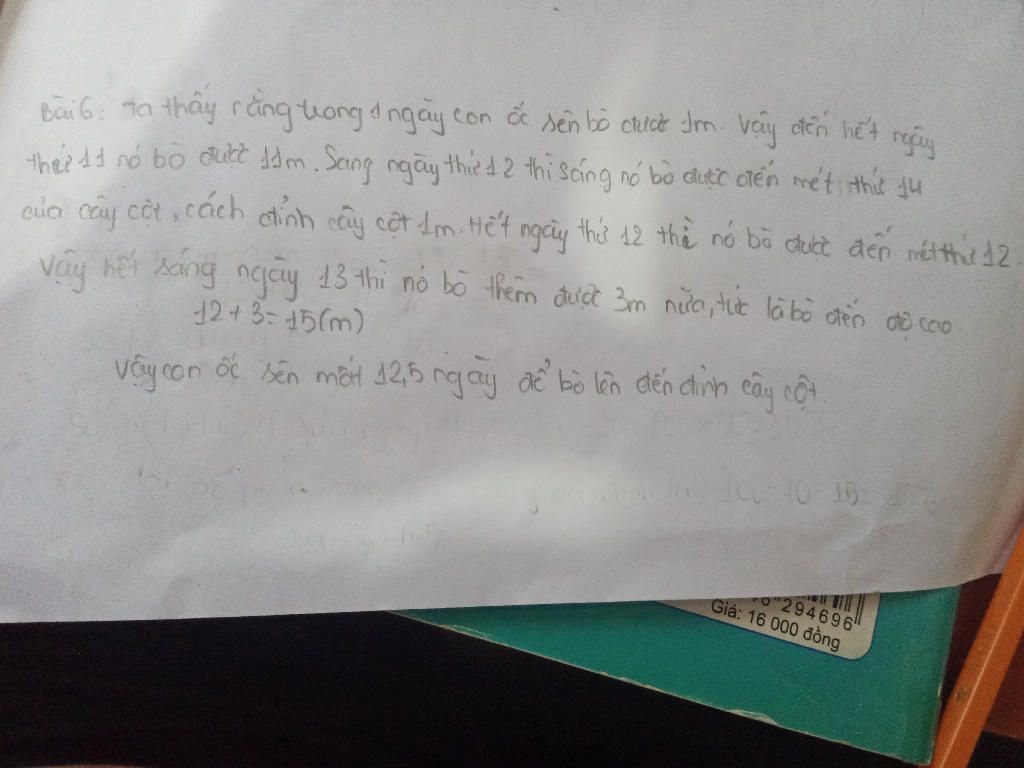 Bài 6: Ta thấy rằng trong 1 ngày con ốc sên bò được 1m. Vậy đến hết ngày
thứ 11 nó bò được 11m. Sang ngày thứ 12 thì sáng nó bò được đến mét thứ 14
của cây cột, cách đỉnh cây cột 1m. Hết ngày thứ 12 thì nó bò được đến mét thứ 12.
Vậy hết sáng ngày 13 thì nó bò thêm được 3m nữa, tức là bò đến độ cao
12 + 3 = 15(m)
Vậy con ốc sên mất 12,5 ngày để bò lên đến đỉnh cây cột.
294696
Giá: 16 000 đồng